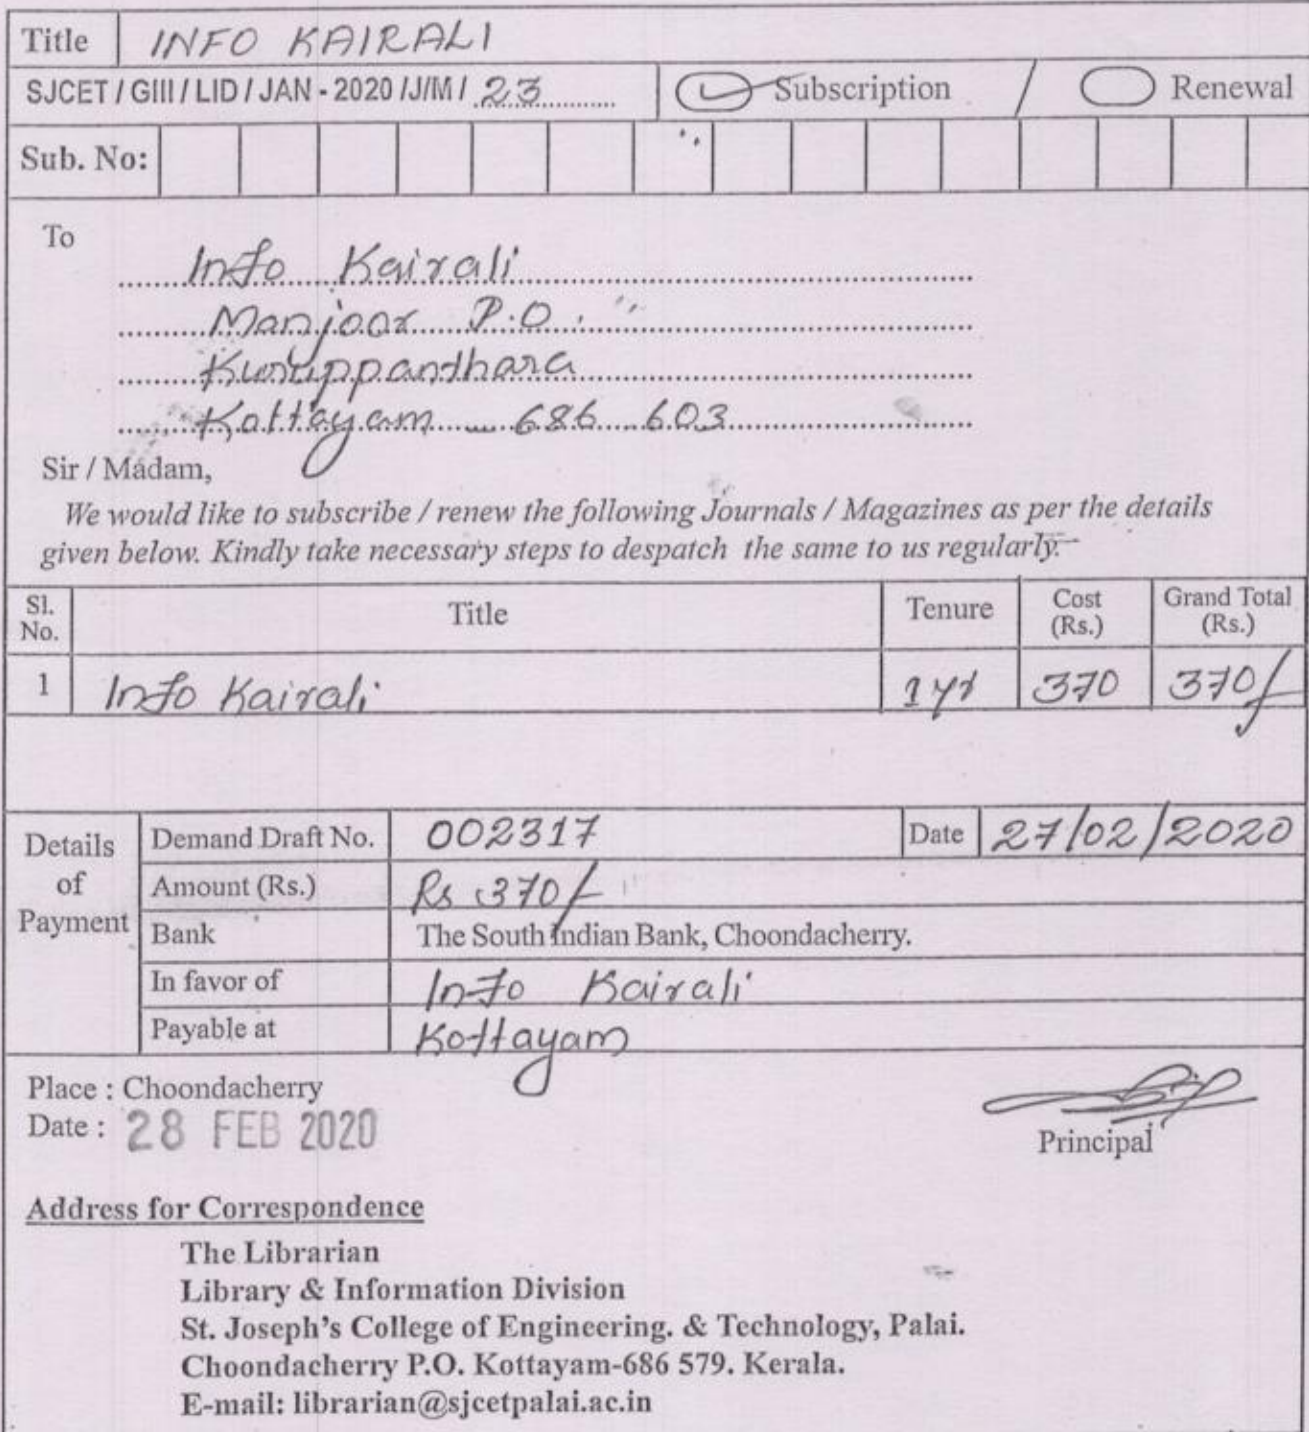 Title INFO KAIRALI
SJCET / GIII / LID / JAN - 2020 /J/M / 23 Subscription / Renewal
Sub. No:
To
Info Kairali
Manjoor P.O.
Kuruppanthara
Kottayam - 686 603
Sir / Madam,
We would like to subscribe / renew the following Journals / Magazines as per the details
given below. Kindly take necessary steps to despatch the same to us regularly.
Sl. No. Title Tenure Cost (Rs.) Grand Total (Rs.)
1 Info Kairali 1 yr 370 370/-
Details of Payment
Demand Draft No. 002317 Date 27/02/2020
Amount (Rs.) Rs 370/-
Bank The South Indian Bank, Choondacherry.
In favor of Info Kairali
Payable at Kottayam
Place : Choondacherry
Date : 28 FEB 2020
Principal
Address for Correspondence
The Librarian
Library & Information Division
St. Joseph's College of Engineering. & Technology, Palai.
Choondacherry P.O. Kottayam-686 579. Kerala.
E-mail: librarian@sjcetpalai.ac.in